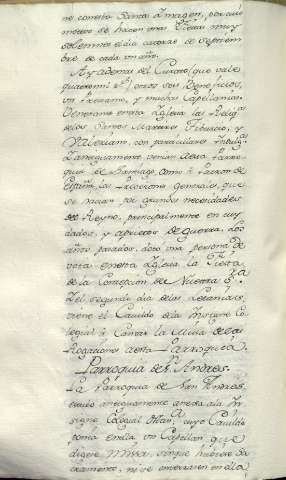 no con esta Santa Ymagen, por cuio
motivo se hacen unas Fiestas muy
solemnes el dia catorze de Septiem
bre de cada un año.
Ay ademas del Curato, que vale
quatro mil otros seis Beneficios,
un Prestamo, y muchas Capellanias.
Veneranse en esta Yglesia las Reliq.
de los Santos Martires Tiburcio, y
Valeriano, con particulares Indulg.
Y antiguamente venian a esta Parro
quia de Santiago, como a Patron de
España, las Procesiones generales, que
se hacian por grandes necesidades
del Reyno, principalmente en cui
dados, y aprietos de guerra. Los
años pasados, doto una persona de
vota en esta Yglesia la Fiesta
de la Concepcion de Nuestra S.ra
Y el segundo dia de las Letanias,
viene el Cavildo de la Insigne Co
legial a Cantar la Misa de las
Rogaciones a esta Parroquia.
Parroquia de S. Andres.
La Parroquia de San Andres,
estuvo antiguamente aneja a la In
signe Colegial, cuyo Cavildo
ponia en ella, un Capellan que
digese Missa, sin que hubiese Sa
cramento, ni se enterrasen en ella,